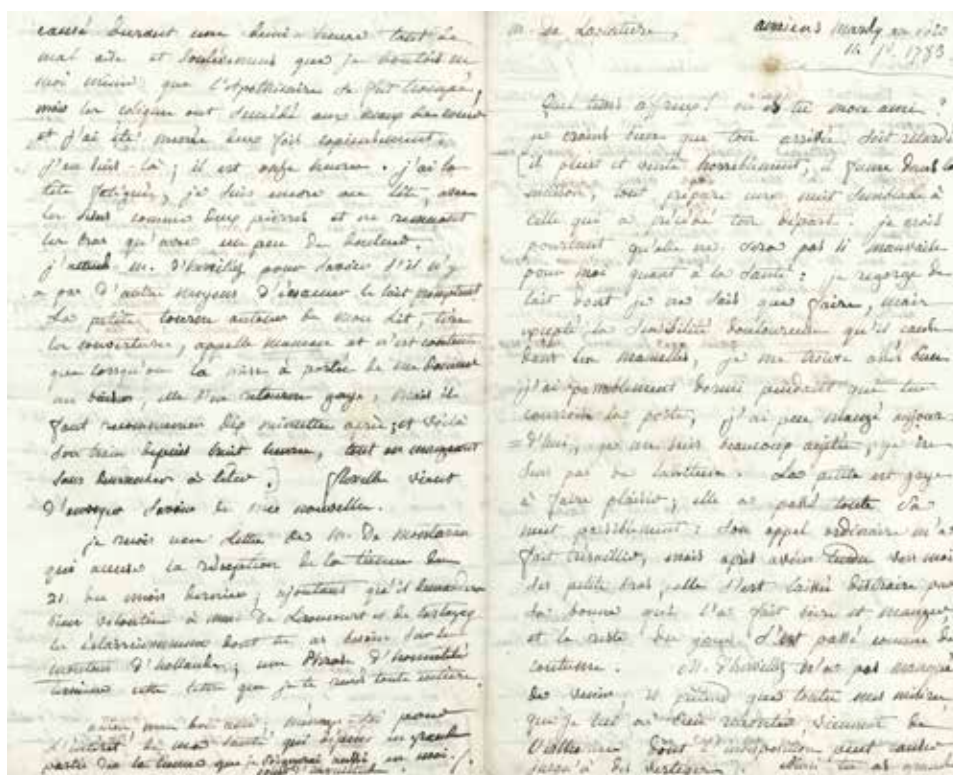 causé durant une demi-heure tout le
mal aise et soulèvement que je sentois
moi même que l'apothicaire se fut trompé;
mais les coliques ont succédé aux maux de coeur
et j'ai été menée deux fois copieusement.
j'en suis-là; il est onze heures. j'ai la
tête fatiguée, je suis encore au lit, avec
les seins comme deux pierres et ne remuant
les bras qu'avec un peu de douleur.
j'attends m. d'hervillez pour savoir s'il n'y
a pas d'autre moyens d'évacuer le lait promptement
La petite tourne autour de mon lit, tire
la couverture, appelle maman et n'est contente
que lorsqu'on la mise à portée de me donner
un baiser, elle s'en retourne gaye, mais il
faut recommencer dix minutes après; et voilà
son train depuis huit heures, tout en mangeant
sans demander à téter.] flesselle vient
d'envoyer savoir de mes nouvelles.
je reçois une lettre de m. de montaran
qui accuse la réception de la tienne du
21. du mois dernier, ajoutant qu'il demandera
bien volontiers à mrs de Lazowski et de
les éclaircissemens dont tu as besoin sur les
moutons d'hollande; une phrase d'honnêteté
termine cette lettre que je te rends toute entière.
adieu mon bon ami, ménage-toi pour
l'intérêt de ma santé qui dépend en grande
partie de la tienne que je
m. de Laplatiere, amiens mardy au soir
1783.
Quel tems affreux! où es tu mon ami?
je crains bien que ton arrivée soit retardée
[il pleut et vente horriblement, il fume dans la
maison, tout prépare une nuit semblable à
celle qui a précédé ton départ. je crois
pourtant qu'elle ne sera pas si mauvaise
pour moi quant à la santé: je regorge de
lait dont je ne sais que faire, mais
excepté la sensibilité douloureuse qu'il cause
dans les mamelles, je me trouve assés bien
j'ai passablement dormi pendant que tu
courrois la poste, j'ai peu mangé aujour
=d'hui, je me suis beaucoup agitée, je ne
suis pas de lavement. La petite est gaye
à faire plaisir; elle a passé toute sa
nuit paisiblement: son appel ordinaire m'a
fait tressaillir, mais après avoir tendu vers moi
ses petits bras, elle s'est laissée distraire par
sa bonne qui l'a fait boire et manger
et le reste du s'est passé comme de
coutume. M. d'hervillez n'a pas manqué
de venir; il prétend que toutes mes misères
que je lui ai bien racontées, viennent de
l'estomac dont l'indisposition peut causer
jusqu'à des vertiges. Mais tu as grand